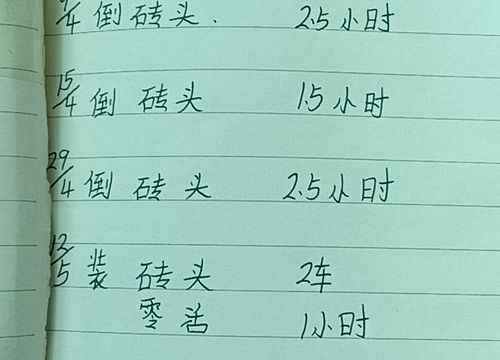 /4 倒砖头. 2.5小时
15/4 倒砖头 1.5小时
29/4 倒砖头 2.5小时
12/5 装砖头 2车
零活 1小时